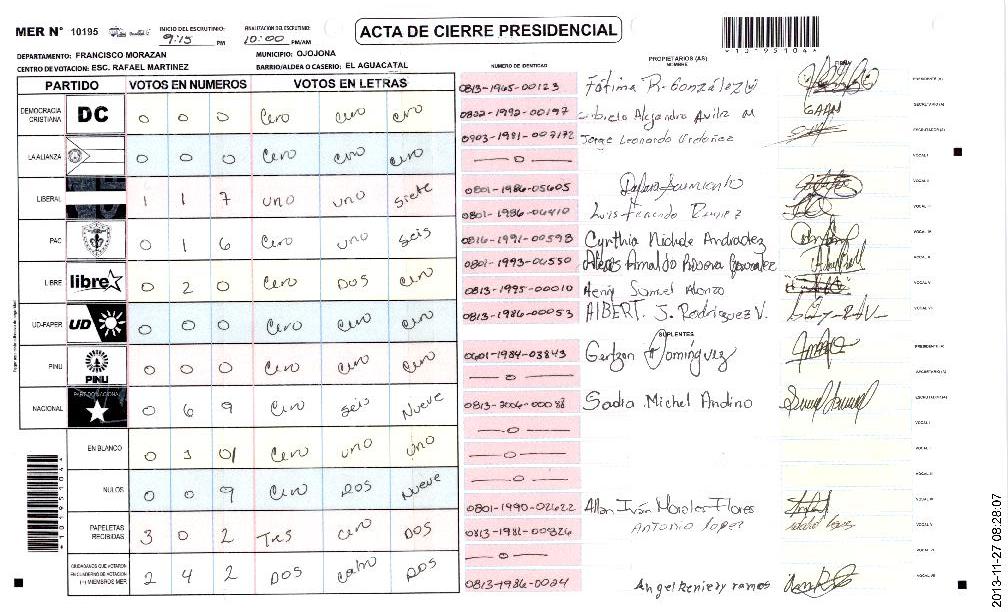 MER Nº 10195
INICIO DEL ESCRUTINIO: 9:15 PM
FINALIZACION DEL ESCRUTINIO: 10:00 PM/AM
ACTA DE CIERRE PRESIDENCIAL
DEPARTAMENTO: FRANCISCO MORAZAN
MUNICIPIO: OJOJONA
CENTRO DE VOTACION: ESC. RAFAEL MARTINEZ
BARRIO/ALDEA O CASERIO: EL AGUACATAL
PARTIDO VOTOS EN NUMEROS VOTOS EN LETRAS
DEMOCRACIA CRISTIANA DC 0 0 0 Cero cero cero
LA ALIANZA 0 0 0 Cero cero cero
LIBERAL 1 1 7 uno uno siete
PAC 0 1 6 Cero uno seis
LIBRE libre 0 2 0 Cero DOS cero
UD-FAPER UD 0 0 0 Cero cero cero
PINU PINU 0 0 0 Cero cero cero
NACIONAL 0 6 9 Cero seis Nueve
EN BLANCO 0 1 01 Cero uno uno
NULOS 0 0 9 Cero DOS Nueve
PAPELETAS RECIBIDAS 3 0 2 Tres cero DOS
CIUDADANOS QUE VOTARON EN CUADERNO DE VOTACION (+) MIEMBROS MER 2 4 2 DOS DOS
NUMERO DE IDENTIDAD
PROPIETARIOS (AS)
NOMBRE
FIRMA
0813-1965-00123 Fátima R. González PRESIDENTE (A)
0822-1992-00197 Alejandro Avila M GAAM SECRETARIO (A)
0903-1981-00 Jorge Leonardo Ordoñez ESCRUTADOR (A)
0 VOCAL I
0801-1986-05605 Sarmiento
0801-1986-06410 Luis Fernando
0816-1991-00598 Cynthia Nichole Andradez
0801-1993-06550 Alexis Arnaldo
0813-1995-00010 Henry Samuel Alonzo
0813-1986-00053 ALBERT. J. Rodriguez V.
SUPLENTES
0601-1984-03843 Gertzon Domínguez PRESIDENTE (A)
0 SECRETARIO (A)
0813-2006-00088 Sadia Michel Andino ESCRUTADOR (A)
0
0
0
0801-1990-02622 Allan Iván Morales Flores
0813-1981-00326 Antonio lopez
0
0813-1986-0024 Angel ramos
*10195104*
2013-11-27 08:28:07